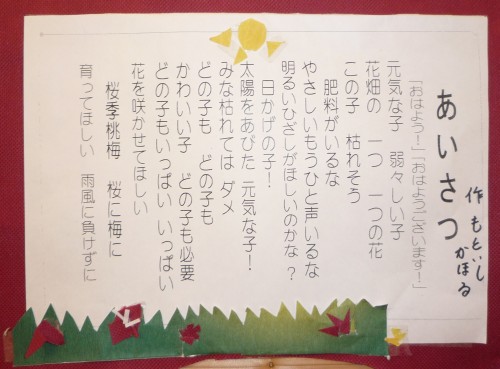 あいさつ
作 もといし
かほる
「おはよう!」「おはようございます!」
元気な子 弱々しい子
花畑の 一つ 一つの花
この子 枯れそう
肥料がいるな
やさしいもうひと声いるな
明るいひざしがほしいのかな?
日かげの子!
太陽をあびた 元気な子!
みな枯れては ダメ
どの子も どの子も
かわいい子 どの子も必要
どの子もいっぱい いっぱい
花を咲かせてほしい
桜季桃梅 桜に梅に
育ってほしい 雨風に負けずに